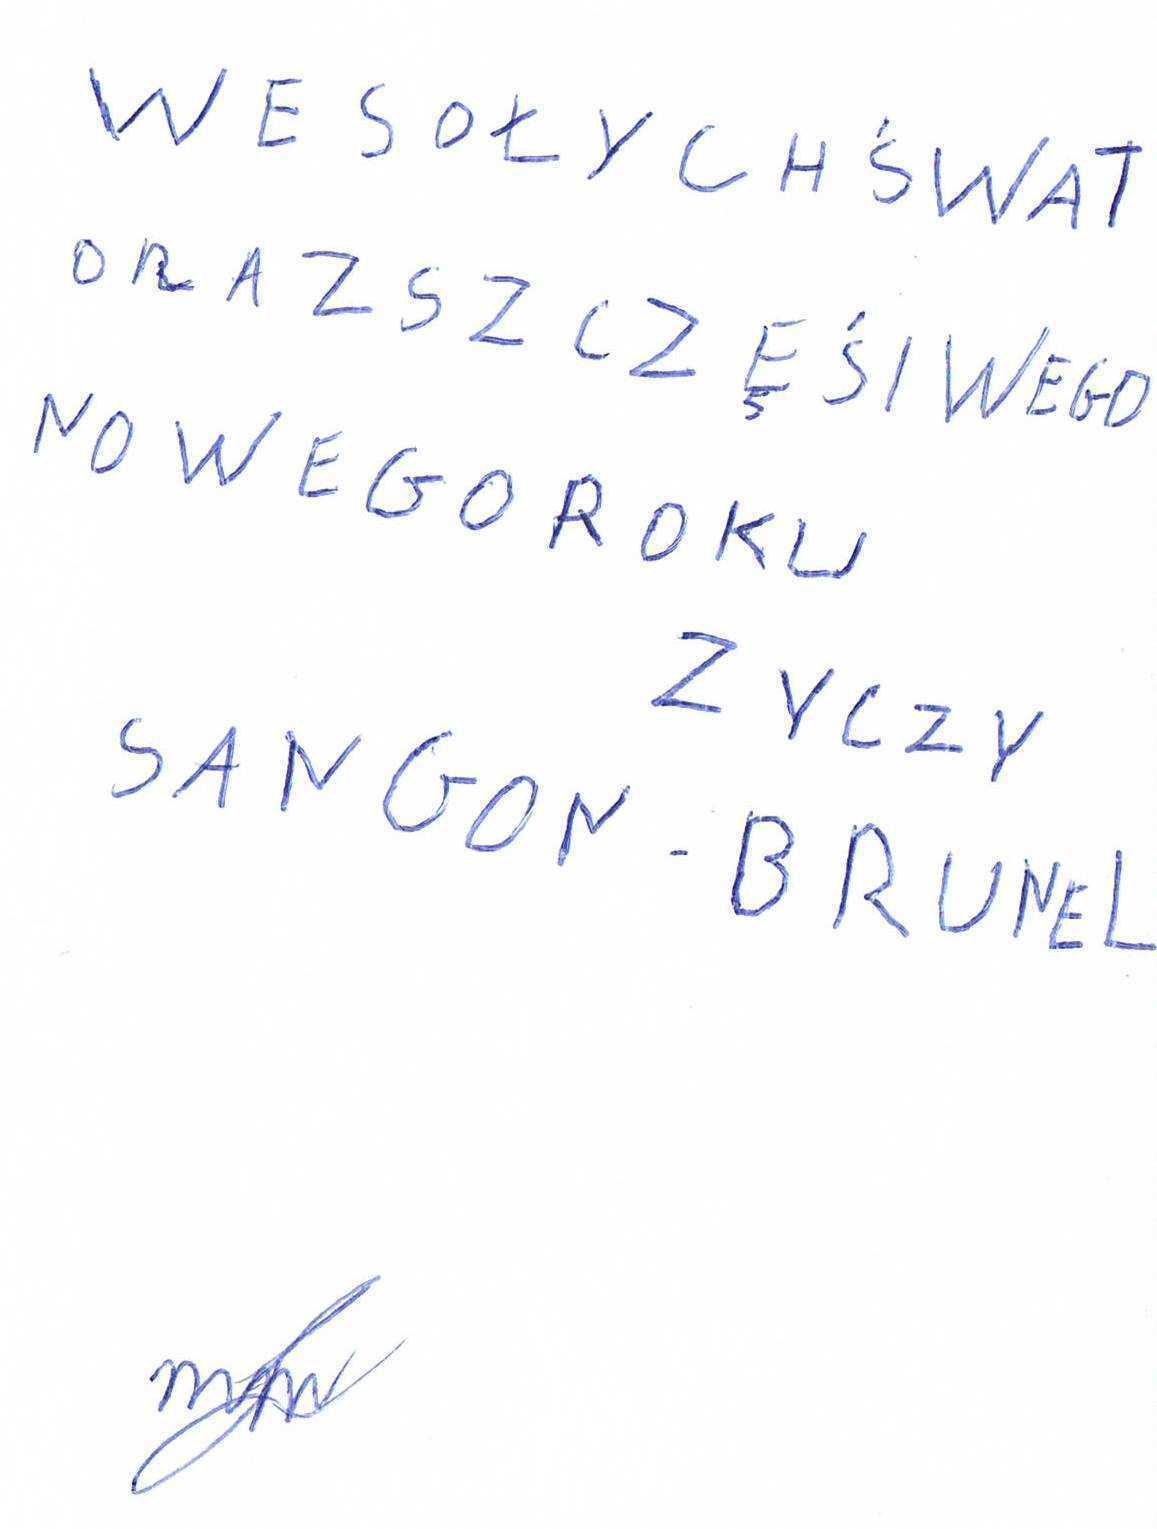 WESOŁYCH ŚWAT
ORAZ SZCZĘŚIWEGO
NOWEGO ROKU
ZYCZY
SANGON-BRUNEL